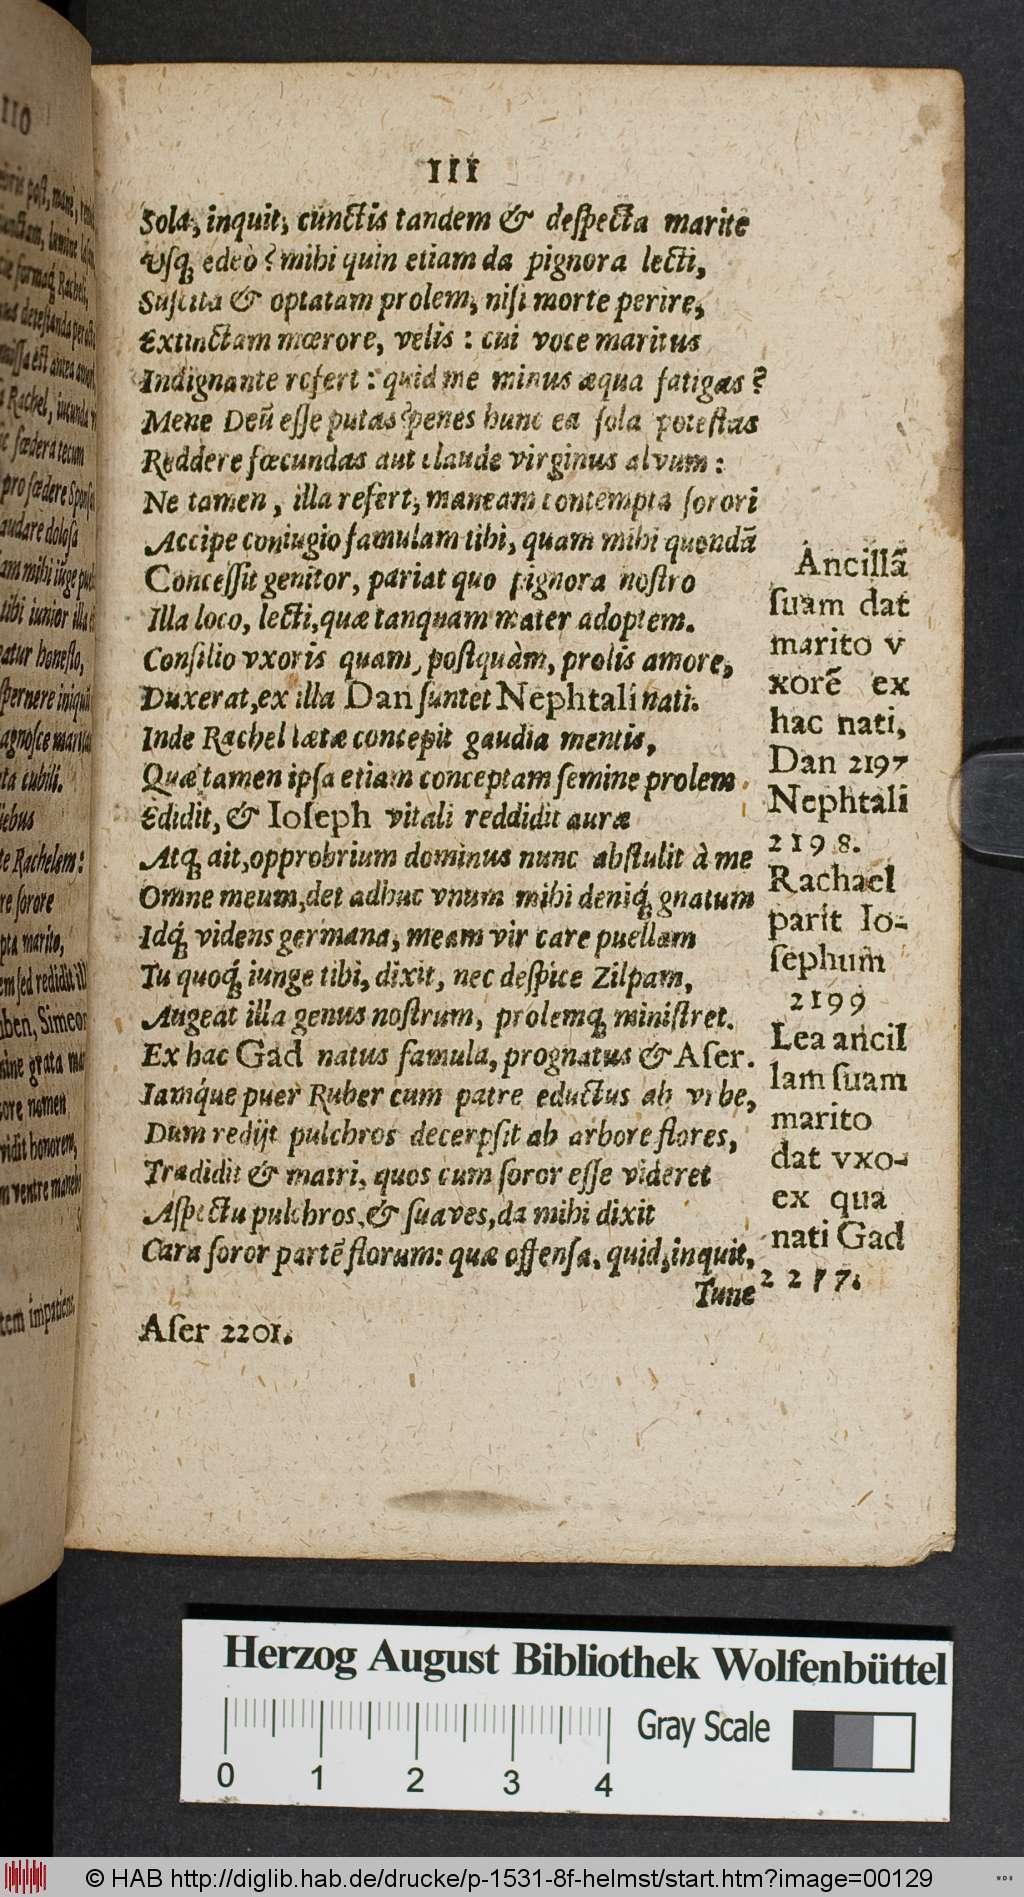 111
Sola, inquit, cūnctis tandem & deſpecta marite
Uſq; edeò? mihi quin etiam da pignora lecti,
Suſcita & optatam prolem, niſi morte perire,
Extinctam mœrore, velis: cui voce maritus
Indignante refert: quid me minus æqua fatigas?
Mene Deū eſſe putas? penes hunc ea ſola poteſtas
Reddere fœcundas aut claude virginus alvum:
Ne tamen, illa refert, maneam contempta ſorori
Accipe coniugio famulam tibi, quam mihi quondā
Conceſſit genitor, pariat quo pignora noſtro
Illa loco, lecti, quæ tanquam mater adoptem.
Conſilio vxoris quam, poſtquàm, prolis amore,
Duxerat, ex illa Dan ſuntet Nephtali nati.
Inde Rachel lætæ concepit gaudia mentis,
Quæ tamen ipſa etiam conceptam ſemine prolem
Edidit, & Ioſeph vitali reddidit auræ
Atq; ait, opprobrium dominus nunc abſtulit à me
Omne meum, det adhuc vnum mihi deniq; gnatum
Idq; videns germana, meam vir care puellam
Tu quoq; iunge tibi, dixit, nec deſpice Zilpam,
Augeat illa genus noſtrum, prolemq; miniſtret.
Ex hac Gad natus famula, prognatus & Aſer.
Iamq́ue puer Ruber cum patre eductus ab vrbe,
Dum redijt pulchros decerpſit ab arbore flores,
Tradidit & matri, quos cum ſoror eſſe videret
Aſpectu pulchros, & ſuaves, da mihi dixit
Cara ſoror partē florum: quæ offenſa, quid, inquit,
Tune
Aſer 2201.
Ancillā
ſuam dat
marito v
xorē ex
hac nati,
Dan 2197
Nephtali
2198.
Rachael
parit Io-
ſephum
2199
Lea ancil
lam ſuam
marito
dat vxo-
ex qua
nati Gad
2 2 1 7.
110
Herzog August Bibliothek Wolfenbüttel
0 1 2 3 4
Gray Scale
© HAB http://diglib.hab.de/drucke/p-1531-8f-helmst/start.htm?image=00129